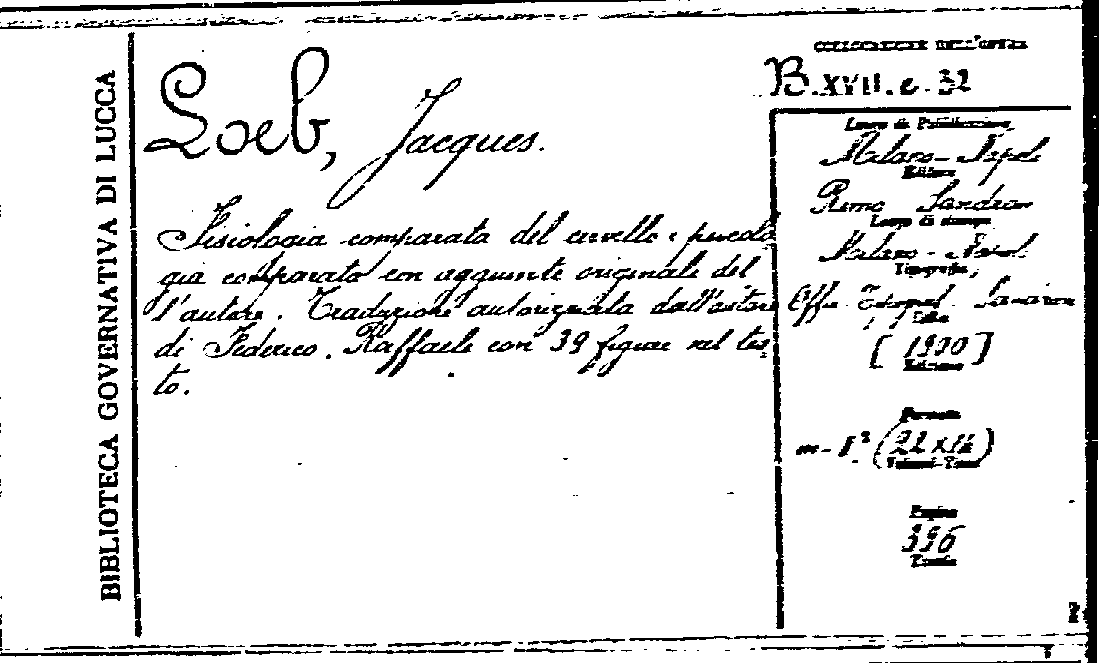 BIBLIOTECA GOVERNATIVA DI LUCCA
COLLOCAZIONE DELL'OPERA
B.XVII.e.32
Loeb, Jacques.
Fisiologia comparata del cervello e psicolo
gia comparata con aggiunte originale del
l'autore. Traduzione autorizzata dall'autore
di Federico. Raffaele con 39 figure nel tes
to.
Luogo di Pubblicazione
Milano - Napoli
Editore
Remo Sandron
Luogo di stampa
Milano - Napoli
Tipografia
Offic. Tipograf. Sandron
[1900]
Edizione
Formato
in-8° (22x14)
Volumi-Tomi
Pagine
396
Tavole